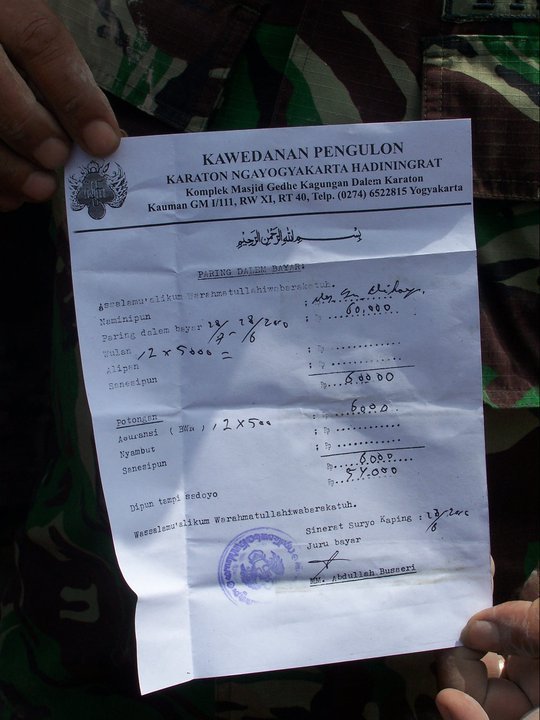 KAWEDANAN PENGULON
KARATON NGAYOGYAKARTA HADININGRAT
Komplek Masjid Gedhe Kagungan Dalem Karaton
Kauman GM I/111, RW XI, RT 40, Telp. (0274) 6522815 Yogyakarta
بِسْمِ اللهِ الرَّحْمٰنِ الرَّحِيْمِ
PARING DALEM BAYAR:
Assalamu'alikum Warahmatullahiwabarakatuh.
Naminipun :
Paring dalem bayar : Rp. 60,000
Wulan 12 x 5000 =
Alipan : Rp ............
Sanesipun : Rp ............
Rp... 60000
Potongan
Asuransi ( BWA ) 12 x 500 : Rp. 6000
Nyambut : Rp ............
Sanesipun : Rp ............
Rp.... 6000
Rp.... 54000
Dipun tampi sadoyo
Wassalamu'alikum Warahmatullahiwabarakatuh.
Sinerat Suryo Kaping :
Juru bayar
MN. Abdullah Busaeri